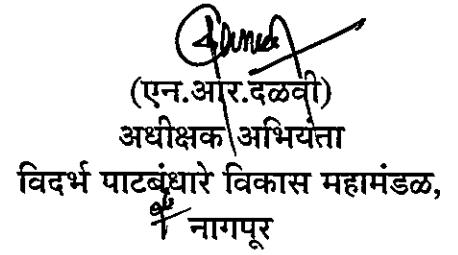 (एन.आर.दळवी)
अधीक्षक अभियंता
विदर्भ पाटबंधारे विकास महामंडळ,
नागपूर